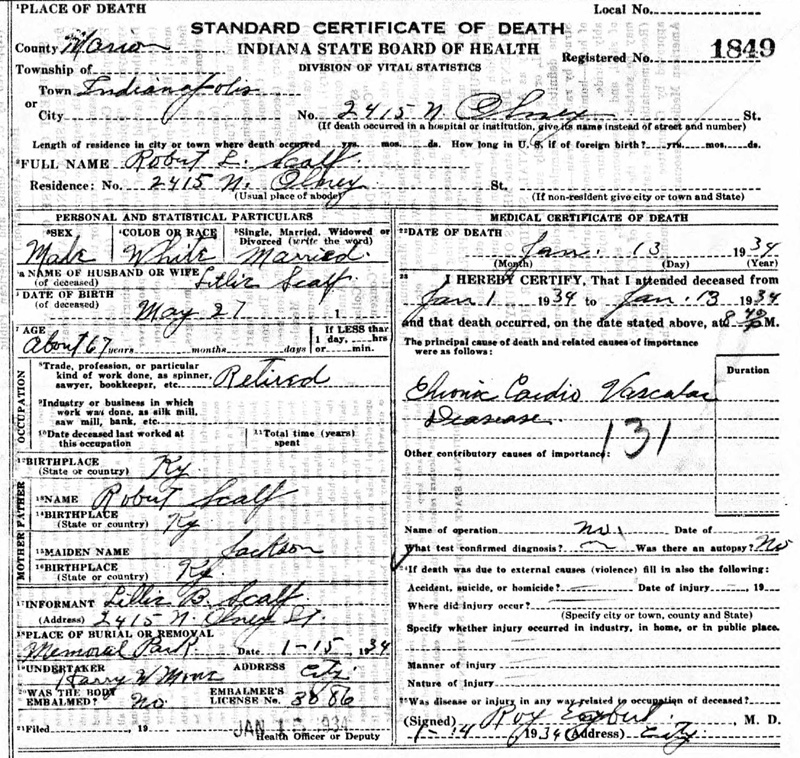 ¹PLACE OF DEATH
Local No.
STANDARD CERTIFICATE OF DEATH
County Marion
INDIANA STATE BOARD OF HEALTH
Registered No. 1849
Township of
DIVISION OF VITAL STATISTICS
Town Indianapolis
or
City
No. 2415 N. Olney St.
(If death occurred in a hospital or institution, give its name instead of street and number)
Length of residence in city or town where death occurred yrs. mos. ds. How long in U. S, if of foreign birth? yrs. mos. ds.
²FULL NAME Robert L. Scalf
Residence: No. 2415 N. Olney St.
(Usual place of abode)
(If non-resident give city or town and State)
PERSONAL AND STATISTICAL PARTICULARS
³SEX
⁴COLOR OR RACE
⁵Single, Married, Widowed or
Divorced (write the word)
Male
White
Married.
NAME OF HUSBAND OR WIFE
(of deceased)
Lillie Scalf
DATE OF BIRTH
(of deceased)
May 27 1
⁷AGE
About 67 years months days
If LESS than
1 day, hrs
or min.
OCCUPATION
⁸Trade, profession, or particular
kind of work done, as spinner,
sawyer, bookkeeper, etc.
Retired
⁹Industry or business in which
work was done, as silk mill,
saw mill, bank, etc.
¹⁰Date deceased last worked at
this occupation
¹¹Total time (years)
spent
¹²BIRTHPLACE
(State or country)
Ky.
FATHER
¹³NAME Robert Scalf
¹⁴BIRTHPLACE
(State or country)
Ky.
MOTHER
¹⁵MAIDEN NAME Jackson
¹⁶BIRTHPLACE
(State or country)
Ky.
¹⁷INFORMANT Lillie B. Scalf
(Address) 2415 N. Olney St.
¹⁸PLACE OF BURIAL OR REMOVAL
Memorial Park Date 1-15, 1934
¹⁹UNDERTAKER
ADDRESS
Harry W Moore
City
²⁰WAS THE BODY
EMBALMED? No.
EMBALMER'S
LICENSE No. 3886
²¹Filed , 19
JAN 1934
Health Officer or Deputy
MEDICAL CERTIFICATE OF DEATH
²²DATE OF DEATH
Jan. 13 1934
(Month) (Day) (Year)
²³
I HEREBY CERTIFY, That I attended deceased from
Jan 1 1934 to Jan. 13 1934
and that death occurred, on the date stated above, at M.
The principal cause of death and related causes of importance
were as follows:
Duration
Chronic Cardio Vascular
Deasease.
131
Other contributory causes of importance:
Name of operation no. Date of
What test confirmed diagnosis? Was there an autopsy? No
If death was due to external causes (violence) fill in also the following:
Accident, suicide, or homicide? Date of injury , 19
Where did injury occur?
(Specify city or town, county and State)
Specify whether injury occurred in industry, in home, or in public place.
Manner of injury
Nature of injury
Was disease or injury in any way related to occupation of deceased?
(Signed) Roy , M. D.
1-14 1934 (Address) City